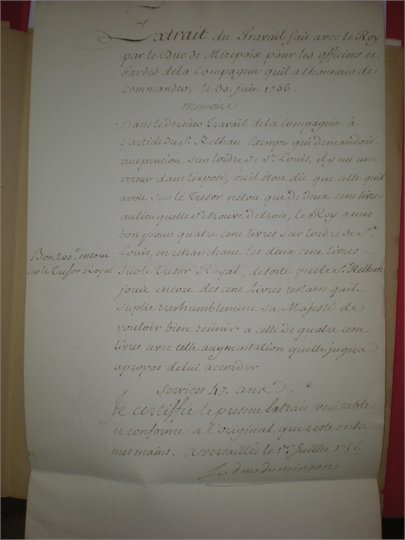 Extrait du Travail fait avec le Roy
par le Duc de Mirepoix pour les officiers et
Gardes de la Compagnie quil a lhonneur de
Commander, le 30. juin 1756.
Memoire
Dans le dernier Travail de la Compagnie à
larticle du S. Rethan Exempt qui demandoit
une pension sur lordre de S.t Louis, il y eut une
erreur dans lexposé, où il étoit dit que celle quil
avoit sur le Tresor nétoit que de deux cent livres
au lieu quelle se trouve de trois, le Roy a mis
bon pour quatre cent livres sur lordre de S.t
Louis, en retranchant les deux cent livres
sur le Tresor Royal, de sorte que le S. Rethan
jouit encore des cent livres restans quil
suplie tres humblement Sa Majesté de
vouloir bien réunir à celle de quatre cent
livres avec telle augmentation quelle jugera
apropos de lui accorder
Bon 200.# en tout
sur le Tresor Royal
Services 47. ans
Je certiffie le present Extrait veritable
et conforme a l'original qui reste entre
mes mains. a versailles le 1.er Juillet 1756
Le duc de mirepoix